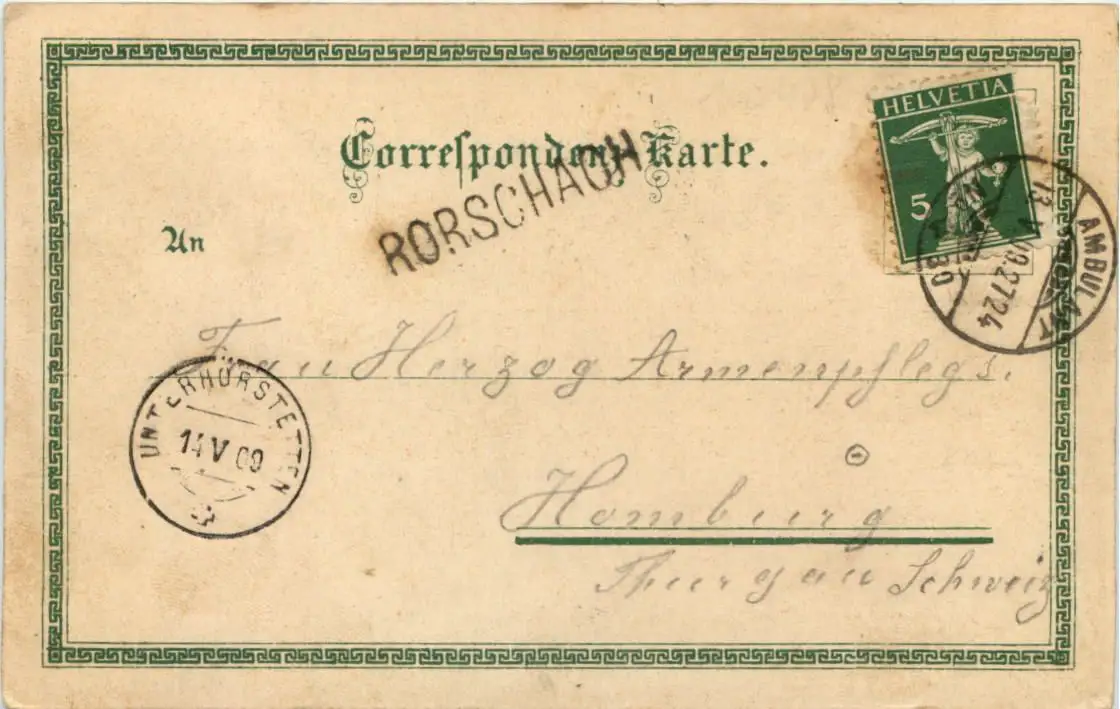 Correspondenz-Karte.
HELVETIA
5
RORSCHACH
An
AMBULANT
13.V.09.2724
Frau Herzog Armenpflegs.
UNTERHÖRSTETTEN
14 V 09
1
Homburg
Thurgau Schweiz